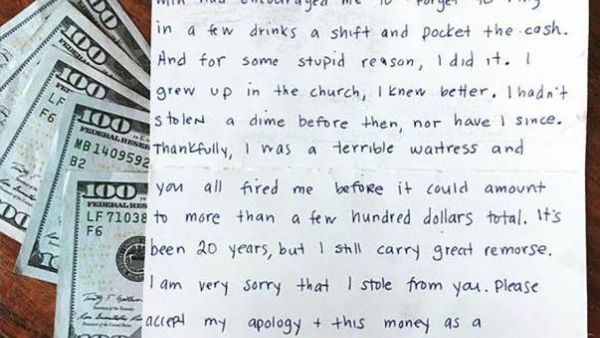 100
100
100
LF
F6
100
FEDERAL RESERVE
MB1409592
B2
100
FEDERAL RES
LF71038
F6
had encouraged me to "forget" to ring
in a few drinks a shift and pocket the cash.
And for some stupid reason, I did it. I
grew up in the church, I knew better. I hadn't
stolen a dime before then, nor have I since.
Thankfully, I was a terrible waitress and
you all fired me before it could amount
to more than a few hundred dollars total. It's
been 20 years, but I still carry great remorse.
I am very sorry that I stole from you. Please
accept my apology + this money as a